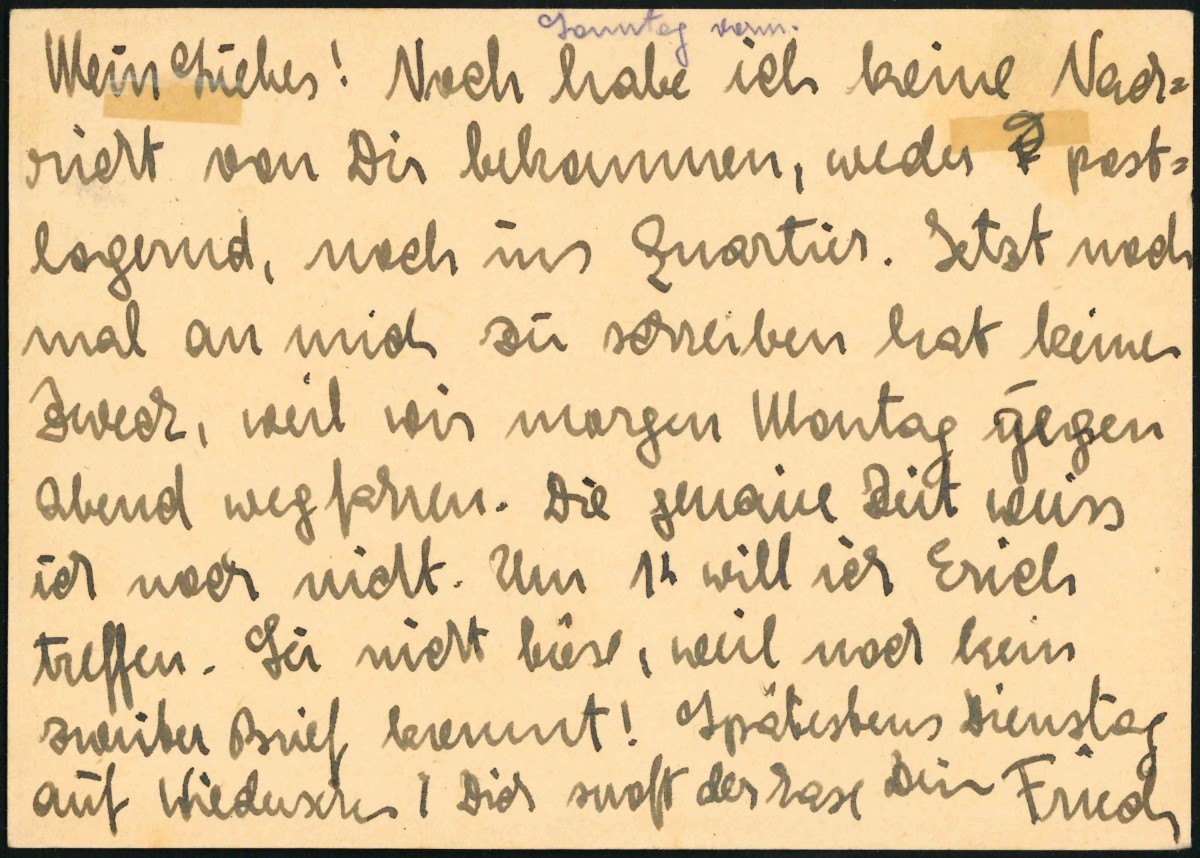 Sonntag vorm.
Mein Liebes! Noch habe ich keine Nach=
richt von Dir bekommen, weder post=
lagernd, noch ins Quartier. Jetzt noch
mal an mich zu schreiben hat keinen
Zweck, weil wir morgen Montag gegen
Abend wegfahren. Die genaue Zeit weiss
ich noch nicht. Um 1h will ich Erich
treffen. Sei nicht böse, weil noch kein
zweiter Brief kommt! Spätestens Dienstag
auf Wiedersehen! Dich Dein